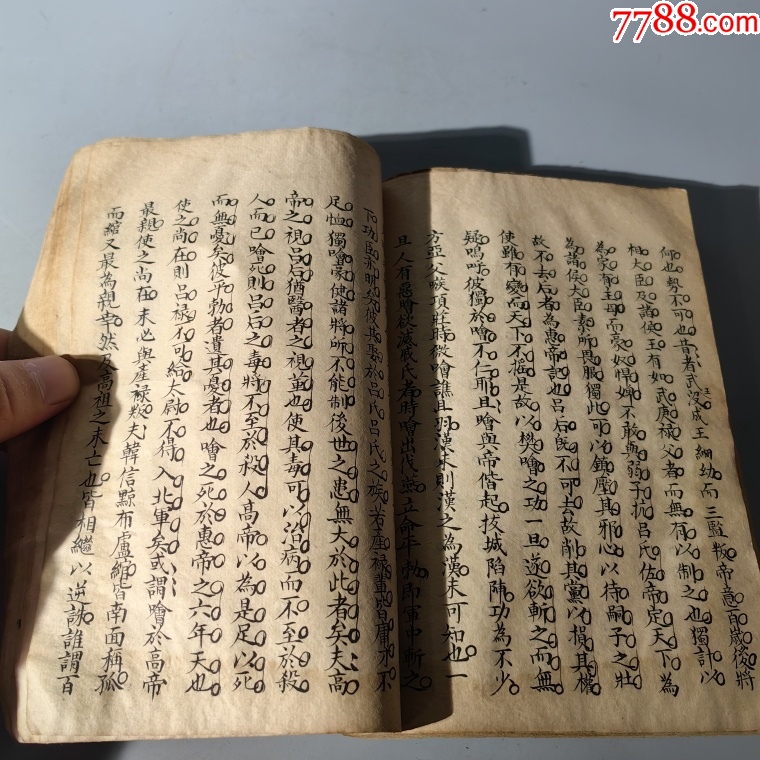 7788.com
王
何也勢不可也昔者武沒成王細幼而三監叛帝意百歲後將
相大臣及諸侯王有如武庚祿父者而無有以制之也獨計以
為家有主母而豪奴悍婢不敢與弱子抗呂氏佐帝定天下為
為諸侯大臣素所畏服獨此可以鎮壓其邪心以待嗣子之壯
故不去后者為惠帝計也呂后既不可去故削其黨以損其權
使雖有變而天下不搖是故以樊噲之功一旦遂欲斬之而無
疑嗚呼彼獨於噲不仁耶且噲與帝偕起拔城陷陣功為不少
方亞父嗾項莊時微噲譙且羽漢未則漢之為漢未可知也一
且人有惡噲欲滅戚氏者時噲出伐燕立命平勃即軍中斬之
下功臣亦明矣彼其娶於呂氏呂氏之族若產祿輩皆庸才不
足恤獨噲豪使諸將所不能制後世之患無大於此者矣夫高
帝之視呂后猶醫者之視堇也使其毒可以治病而不至於殺
人而已噲死則呂后之毒將不至於殺人高帝以為是足以死
而無憂矣彼平勃者遺其憂者也噲之死於惠帝之六年天也
使之尚在則呂祿不可紿太尉不得入北軍矣或謂噲於高帝
最親使之尚在未必與產祿叛夫韓信黥布盧綰皆南面稱孤
而綰又最為親幸然及高祖之未亡也皆相繼以逆誅誰謂百